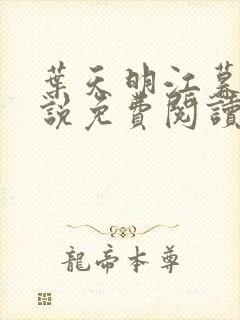 葉天明江慕
說免費閱讀
龍帝本尊